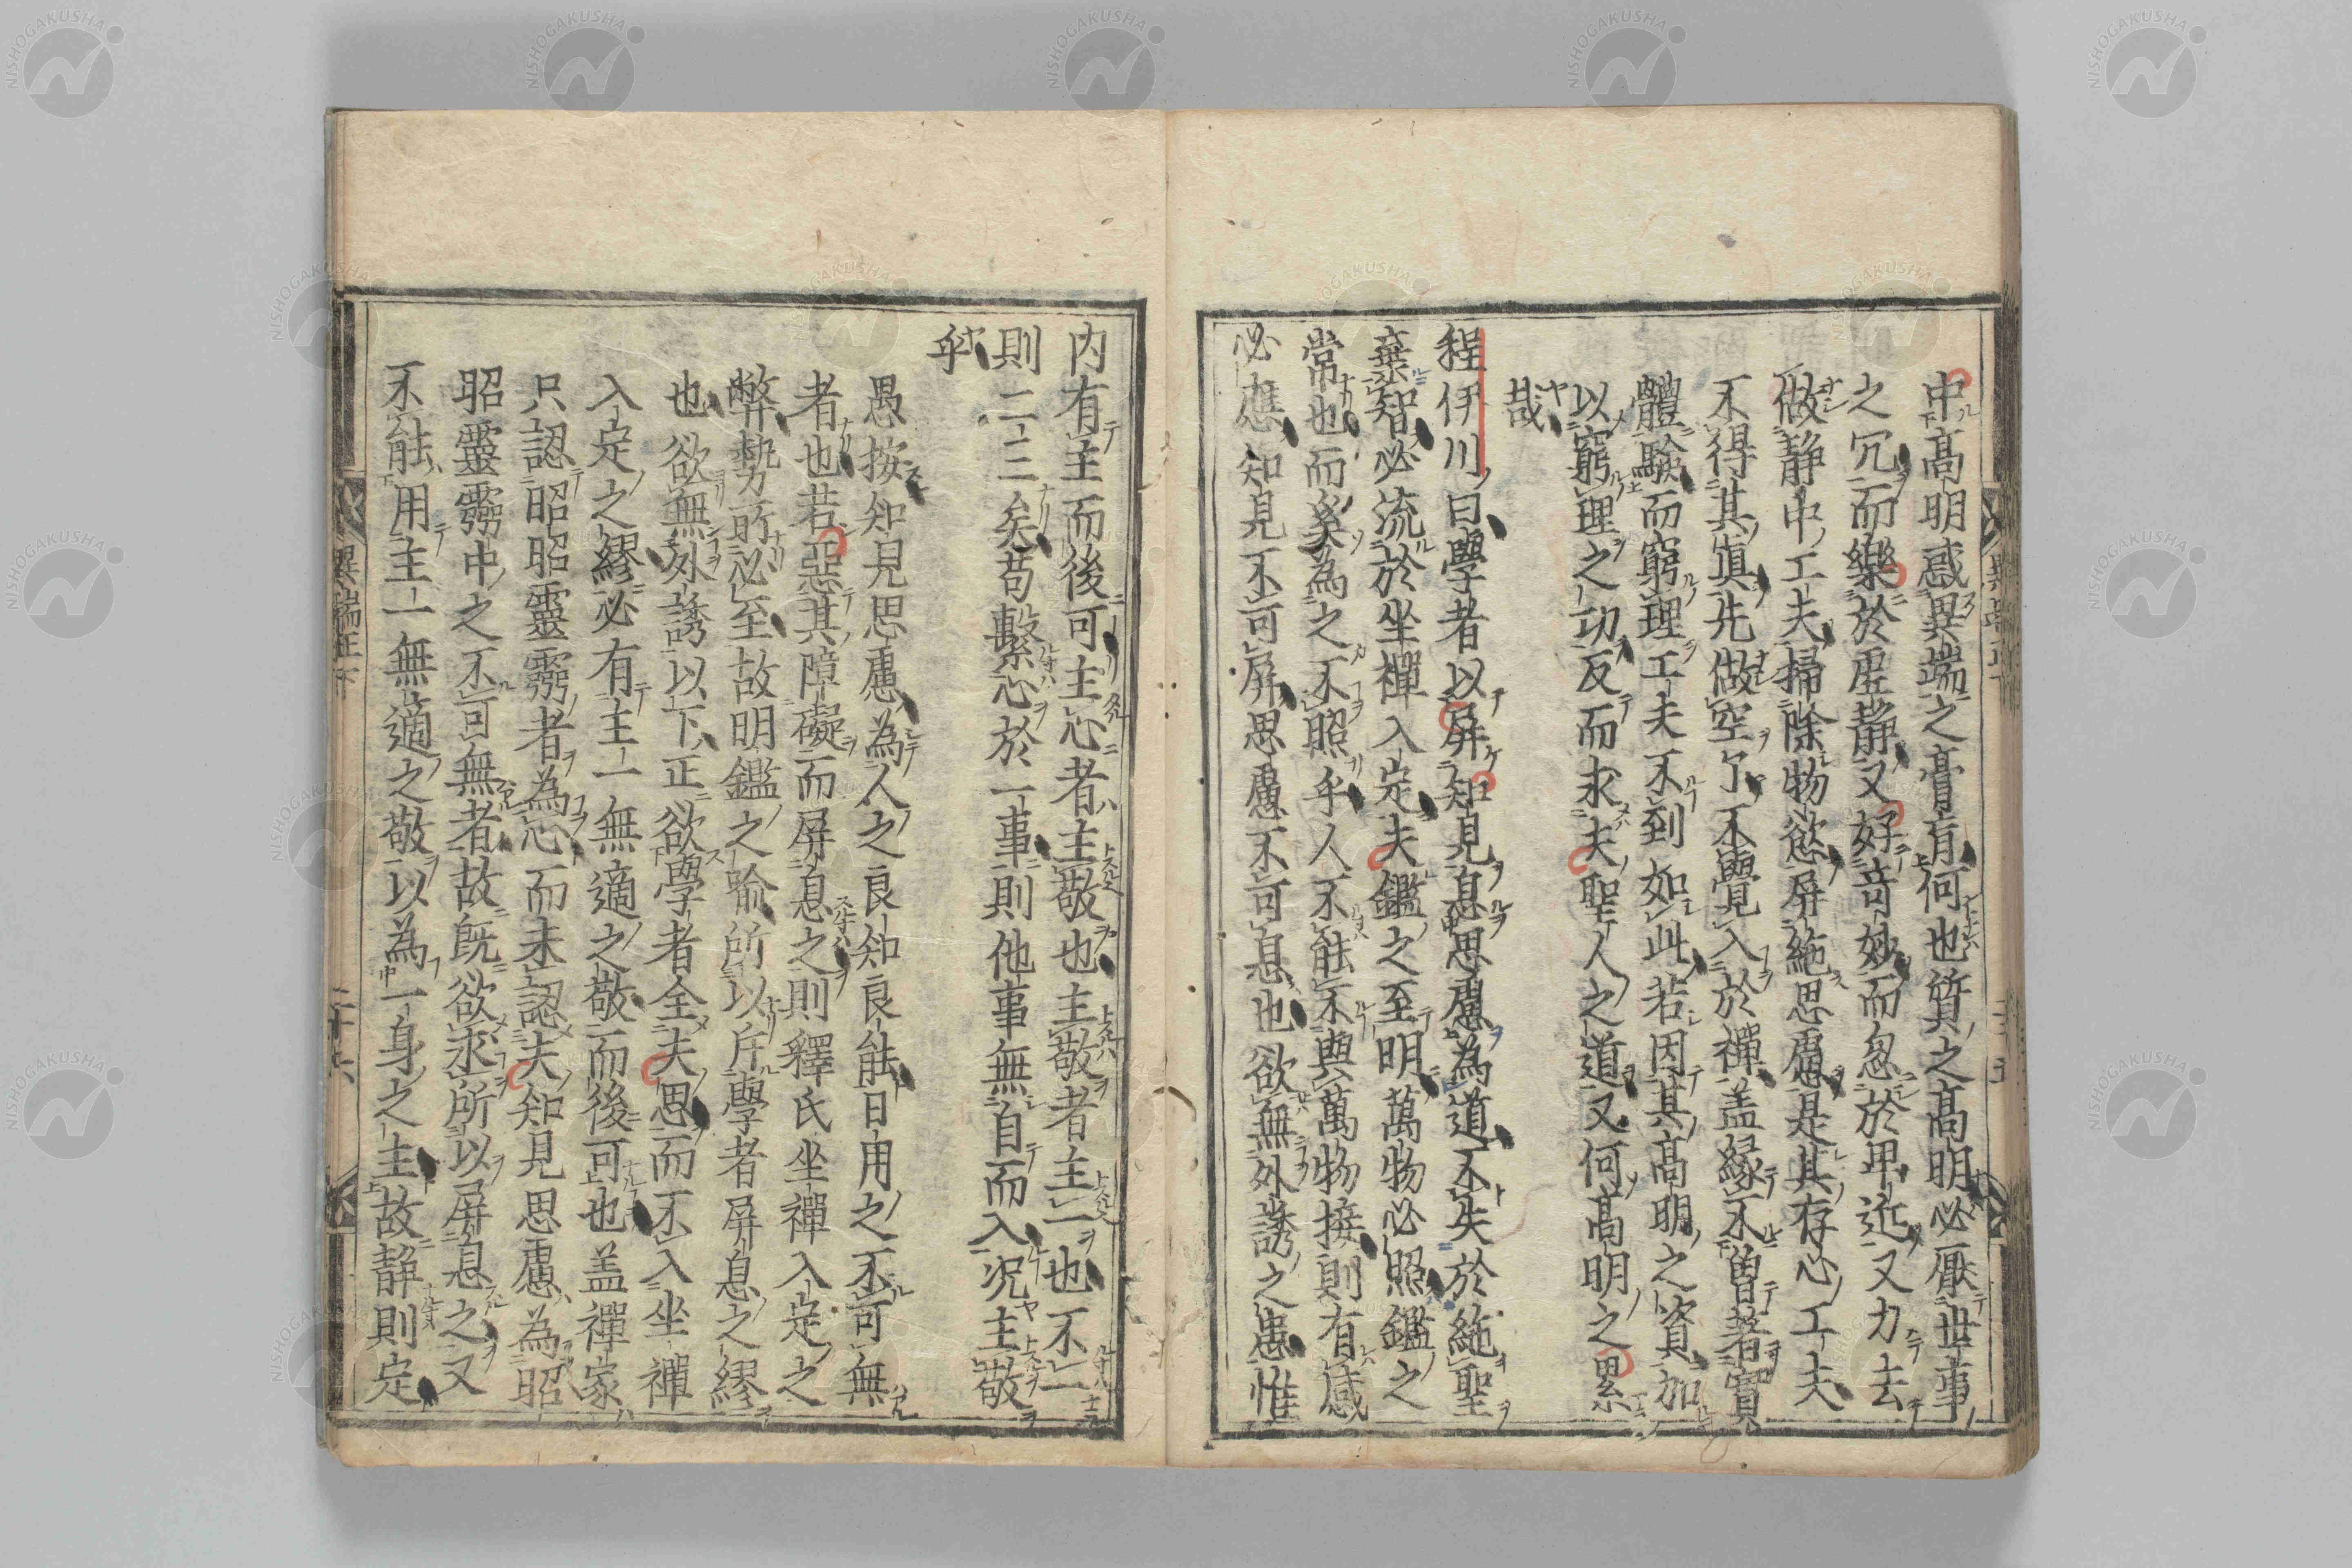 中高明惑異端之膏肓何也質之高明必厭世事
之冗而樂於虛静又好奇妙而忽於卑近又力去
做静中工夫掃除物慾屏絶思慮是其存心工夫
不得其眞先做空了不覺入於禪盖縁不曽著實
體驗而窮理工夫不到如此若因其高明之資加
以窮理之功反而求夫聖人之道又何高明之累
哉
程伊川曰學者以屏知見息思慮為道不失於絶聖
棄智必流於坐禪入定夫鑑之至明萬物必照鑑之
常也而奚為之不照乎人不能不與萬物接則有感
必應知見不可屏思慮不可息也欲無外誘之患惟
内有主而後可主心者主敬也主敬者主一也不一
則二三矣苟繫心於一事則他事無自而入况主敬
乎
愚按知見思慮為人之良知良能日用之不可無
者也若惡其障礙而屏息之則釋氏坐禪入定之
弊勢所必至故明鑑之喻所以斥學者屏息之繆
也欲無外誘以下正欲學者全夫思而不入坐禪
入定之繆必有主一無適之敬而後可也盖禪家
只認昭昭靈靈者為心而未認夫知見思慮為昭
昭靈靈中之不可無者故旣欲求所以屏息之又
不能用主一無適之敬以為一身之主故静則定
異端正下
二十六